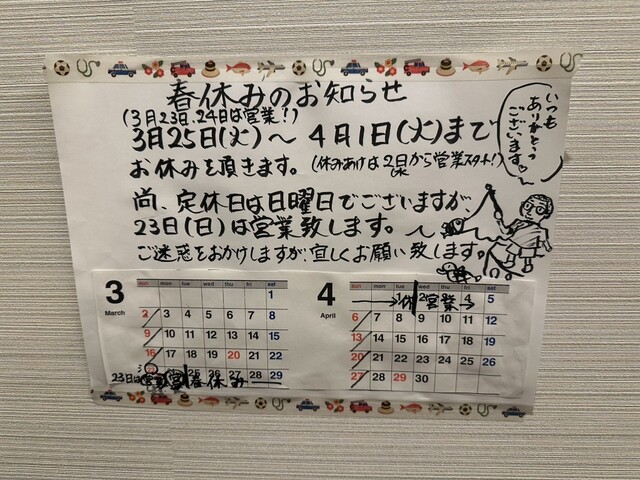 春休みのお知らせ
(3月23日.24日は営業!)
3月25日(火)〜4月1日(火)まで
お休みを頂きます。(休みあけは2日(水)から営業スタート!)
尚、定休日は日曜日でございますが、
23日(日)は営業致します。
ご迷惑をおかけしますが、宜しくお願い致します。
いつも
ありがとう
ございます
3
March
sun mon tue wed thu fri sat
1
2 3 4 5 6 7 8
9 10 11 12 13 14 15
16 17 18 19 20 21 22
25 26 27 28 29
23日は営業 春休み
4
April
sun mon tue wed thu fri sat
休 営業 4 5
6 7 8 9 10 11 12
13 14 15 16 17 18 19
20 21 22 23 24 25 26
27 28 29 30